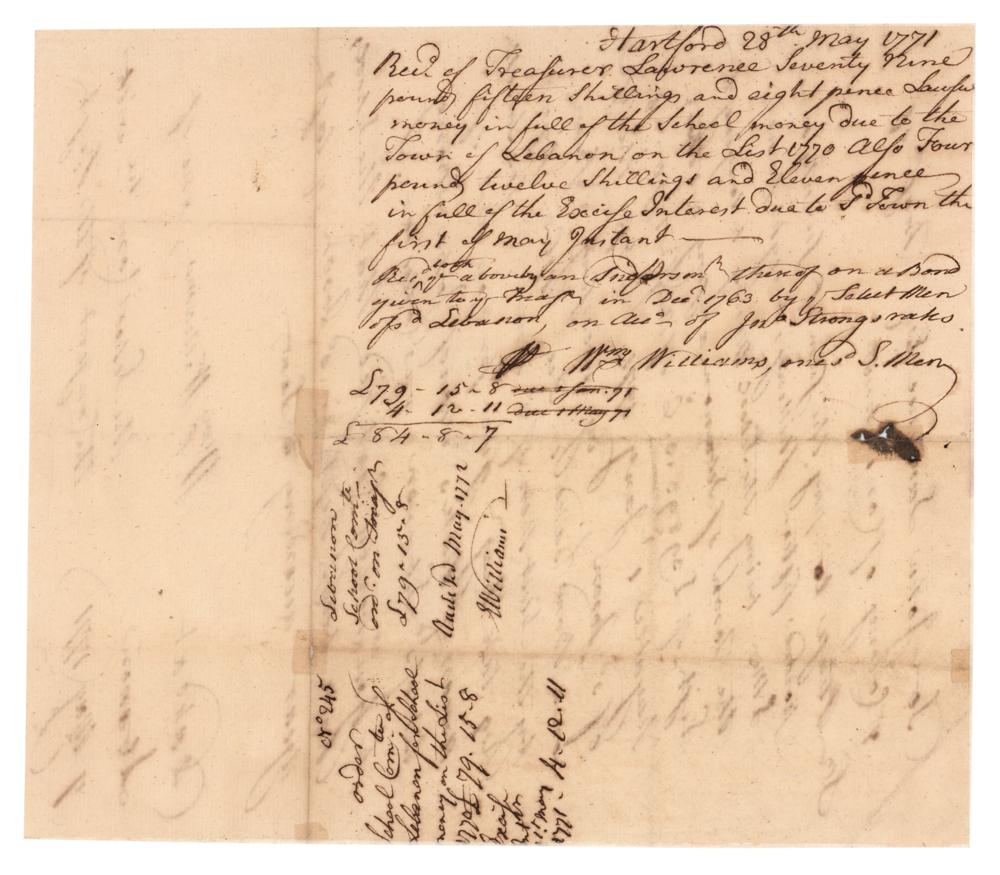 Hartford 28th May 1771
Recd of Treasurer Lawrence Seventy Nine
pounds fifteen Shillings and eight pence Lawfu
money in full of the School money due to the
Town of Lebanon on the List 1770 Also Four
pounds twelve Shillings and Eleven pence
in full of the Excise Interest due to sd Town the
first of May Instant
Recd ye above by an Indorsmt thereof on a Bond
given to ye Treasr in Decr 1763 by ye Select Men
of sd Lebanon, on Acco of Jno Strongs rates.
Wm Williams, one sd S. Men
£79 - 15 - 8 due 1 Jan. 71
4 - 12 - 11 due 1 May 71
£ 84 - 8 - 7
Lebanon
School Comte
ordr on Treasr
£79 - 15 - 8
Audited May. 1772
EWilliams
No 245
order
School Comte of
Lebanon for School
money on the List
1770 £79. 15 - 8
Excise
1st May
1771 - 4. 12. 11